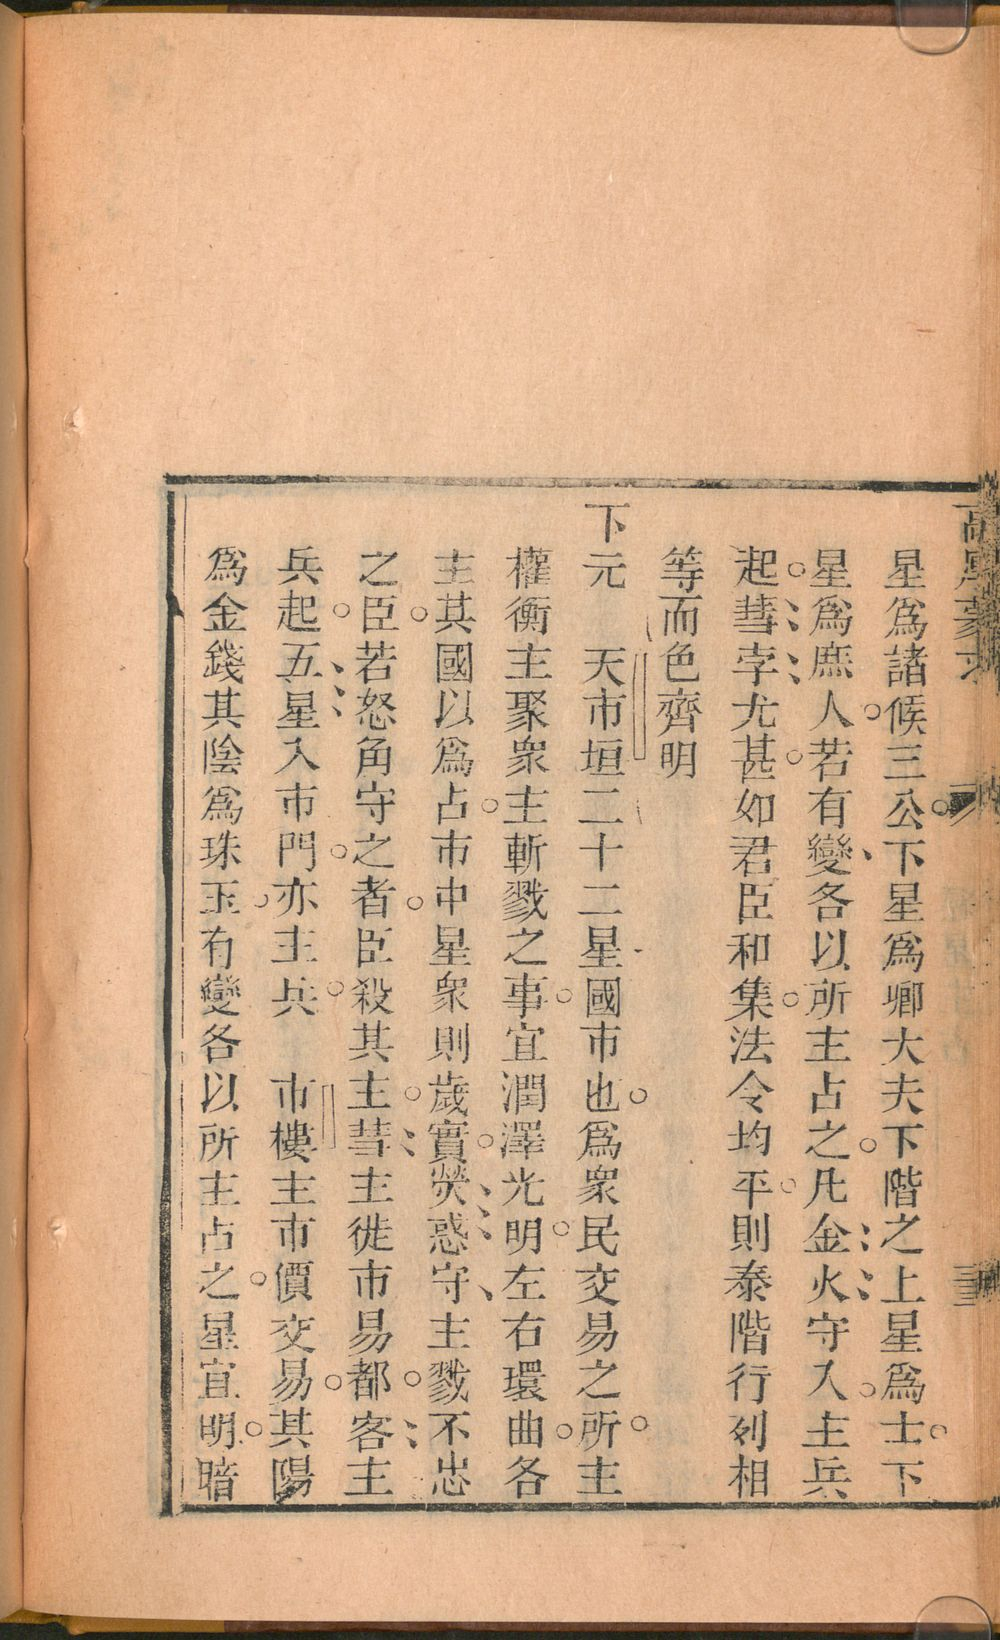 星爲諸侯三公下星爲卿大夫下階之上星爲士下
星爲庶人若有變各以所主占之凡金火守入主兵
起彗孛尤甚如君臣和集法令均平則泰階行列相
等而色齊明
下元　天市垣二十二星國市也爲衆民交易之所主
權衡主聚衆主斬戮之事宜潤澤光明左右環曲各
主其國以爲占市中星衆則歲實熒惑守主戮不忠
之臣若怒角守之者臣殺其主彗主徙市易都客主
兵起五星入市門亦主兵　市樓主市價交易其陽
爲金錢其陰爲珠玉有變各以所主占之星宜明暗